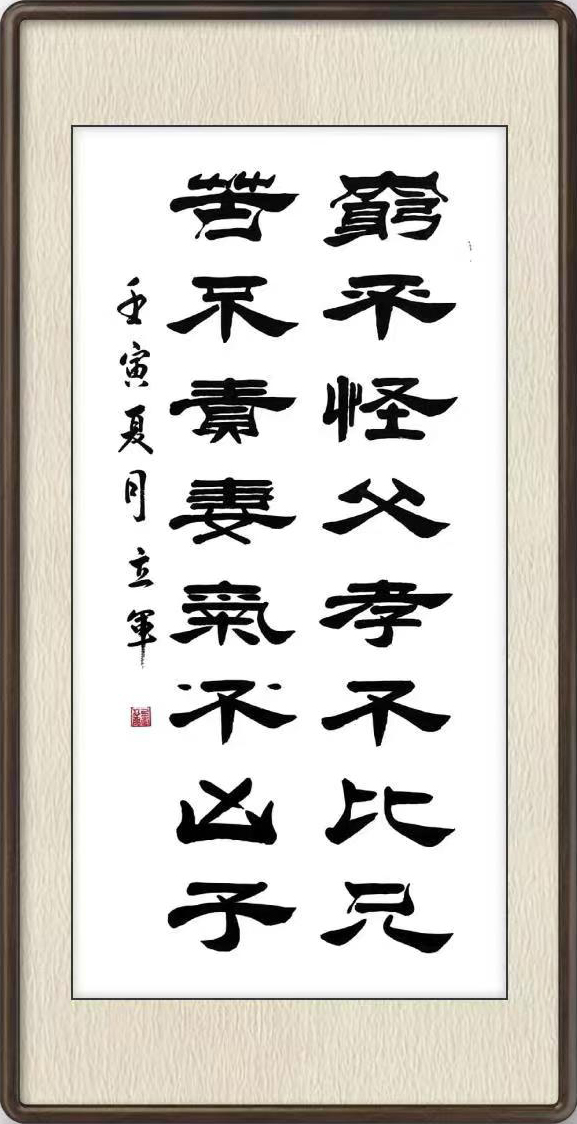 窮不怪父孝不比兄
苦不責妻氣不凶子
壬寅夏月立軍